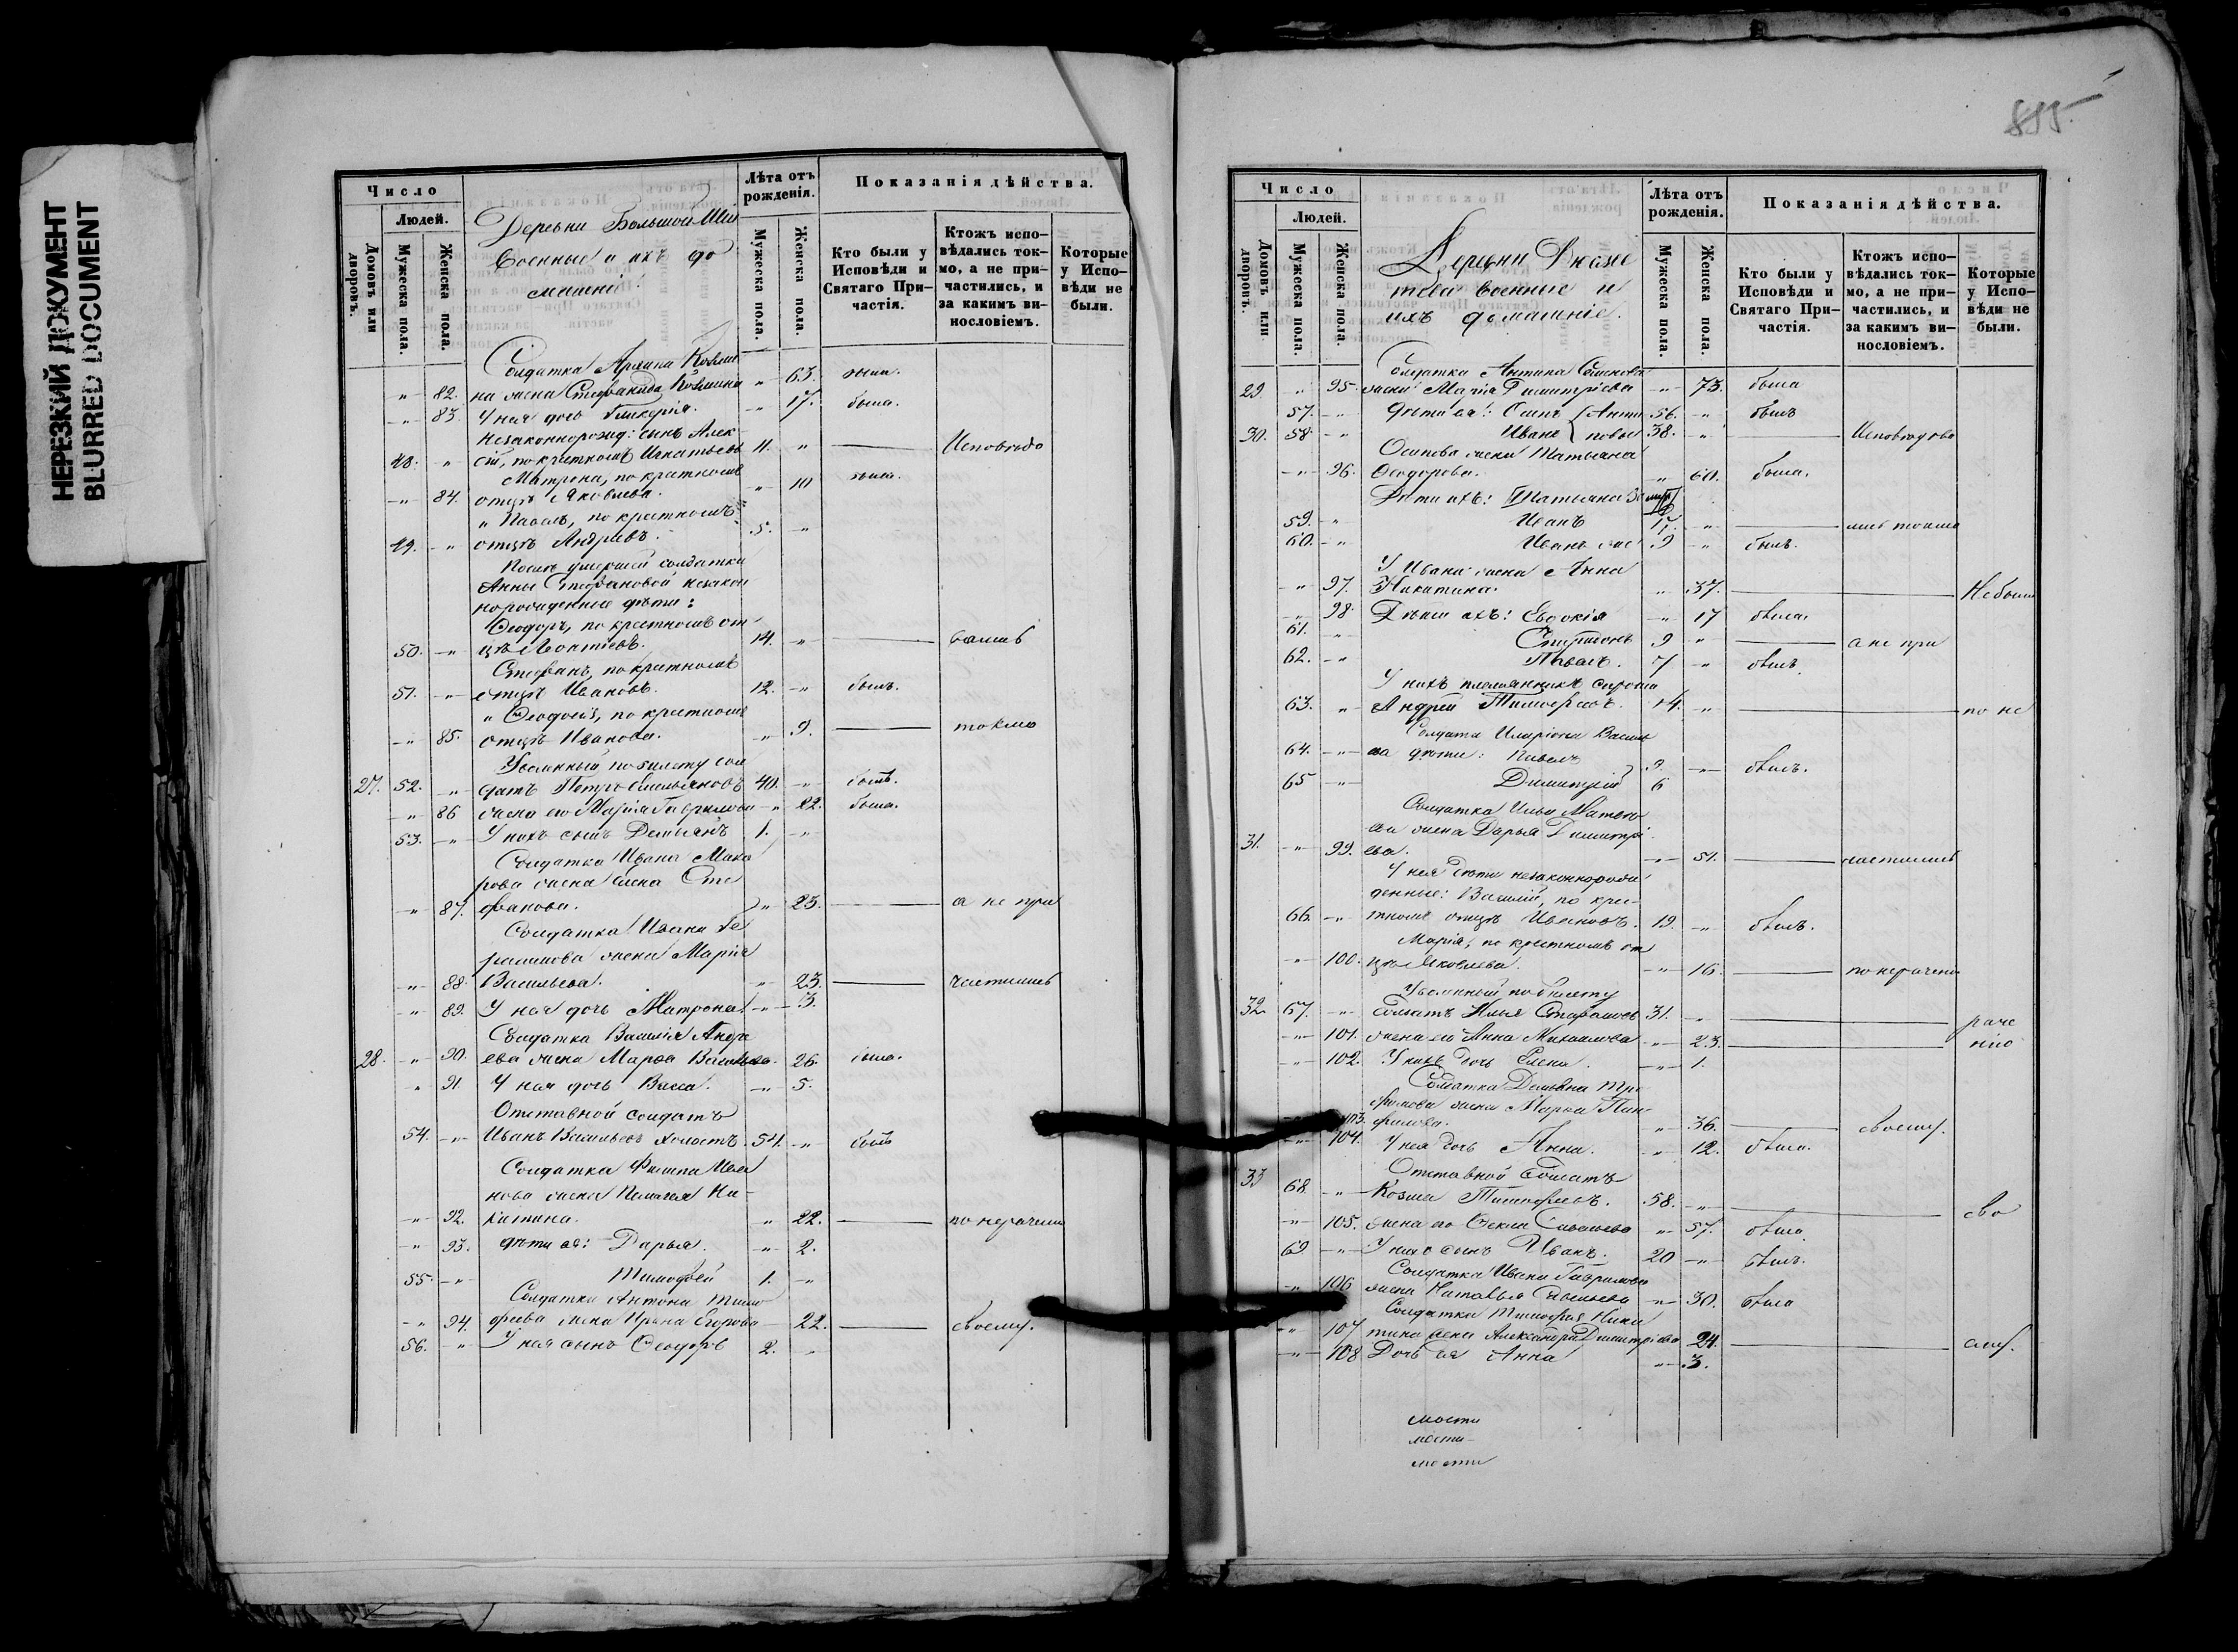 НЕРЕЗКИЙ ДОКУМЕНТ
BLURRED DOCUMENT
Число
Людей.
Домовъ или дворовъ.
Мужеска пола.
Женска пола.
Деревни Большой
Военные и ихъ до
машніе.
Лѣта отъ рожденія.
Мужеска пола.
Женска пола.
Показанія дѣйства.
Кто были у Исповѣди и Святаго Причастія.
Ктожъ исповѣдались токмо, а не причастились, и за какимъ винословіемъ.
Которые у Исповѣди не были.
Солдатка
82. на жена Козмина " 63. была.
83. У нея дочь Гликерія. " 17. была.
Незаконнорожд: сынъ Алек
48. " сій, по крестному Игнатьевъ 11. " Исповѣдо
Матрона, по крестному
" 84. отцу Яковлева. " 10 была.
" Павелъ, по крестному
49. " отцу Андреевъ. 5. "
Послѣ умершей солдатки
Анны Стефановой незакон
норожденные дѣти:
Ѳеодоръ, по крестному от
50. " цу Леонтіевъ. 14. " вались
Стефанъ, по крестному
51. " отцу Ивановъ. 12. " былъ.
" по крестному
" 85. отцу Иванова. " 9. токмо
Уволенный по билету сол
27. 52. " датъ Петръ Емельяновъ 40. " былъ.
" 86 жена его Марія Гаврилова " 22. была.
53. " У нихъ сынъ Демьянъ 1. "
Солдатка Ивана Мака
рова жена Елена Сте
" 87. фанова. " 23. а не при
Солдатка Ивана Ге
расимова жена Марія
" 88. Васильева. " 23. частились
" 89. У нея дочь Матрона " 3.
Солдатка Василія Андре
28. " 90. ева жена Марѳа Васильева. 26. была.
" 91. У нея дочь Васса. " 5.
Отставной солдатъ
54. " Иванъ Васильевъ холостъ. 54. " былъ
Солдатка Филипа Ива
нова жена Пелагея Ни-
" 92. китина. " 22. по нерачению
" 93. дѣти ея: Дарья. " 2.
55. " Тимофей 1. "
Солдатка Антона Тимо
" 94. феева жена Ирина Егорова 22. своему.
56. " У нея сынъ Ѳеодоръ 2. "
895.
Число
Людей.
Домовъ или дворовъ.
Мужеска пола.
Женска пола.
Деревни
военные и
ихъ домашніе.
Лѣта отъ рожденія.
Мужеска пола.
Женска пола.
Показанія дѣйства.
Кто были у Исповѣди и Святаго Причастія.
Ктожъ исповѣдались токмо, а не причастились, и за какимъ винословіемъ.
Которые у Исповѣди не были.
Солдатка Антипа Семенова
29. " 95. жена Марѳа Димитріева " 73. была
57. " дѣти ея: Осипъ Анти 56. " былъ
30. 58. " Иванъ повы 38. " Исповѣдова
Осипова жена Татьяна
" 96. Ѳеодорова. " 60. была.
Дѣти ихъ:
59. " Иванъ 17. " лись токмо
60. " Иванъ 9 " былъ.
У Ивана жена Анна
" 97. Никитина. " 37. Не были
" 98 Дѣти ихъ: Евдокія " 17 была.
61. " 9 " а не при
62. " Павелъ. 7 " былъ
У нихъ племянникъ сирота
63. " Андрей Тимофеевъ. 14. " по не
Солдата Иларіона Василь
64. " ва дѣти: Павелъ 9. " былъ.
65 " Димитрій 6
Солдатка Ильи
ва жена Дарья Димитрі
31. " 99. ева. " 51. частились
У нея дѣти незаконнорож
денные: Василій, по крес-
66. " тному отцу Ивановъ. 19. " былъ.
Марія, по крестному от
" 100. цу Яковлева. " 16. по нерачению
Уволенный по билету
32. 67. " Солдатъ Илья 31. " раче
" 101. жена его Анна Михайлова " 23. нію
" 102. У нихъ дочь Елена. " 1.
Солдатка Демьяна Тро
фимова жена Марѳа Пан-
103. филова. " 36. своему.
" 104. У нея дочь Анна. " 12. была.
Отставной Солдатъ
33 68 " Козма Тимофеевъ. 58. " сво
" 105. жена его Савельева " 57. была
69 " У нея сынъ Иванъ. 20 " былъ.
Солдатка Ивана Гаврилова
" 106 жена Наталья Савельева " 30. была
Солдатка Тимофея Ники
" 107 тина жена Александра Димитріева 24. ему.
" 108 Дочь ея Анна " 3.
мости
мости
мости